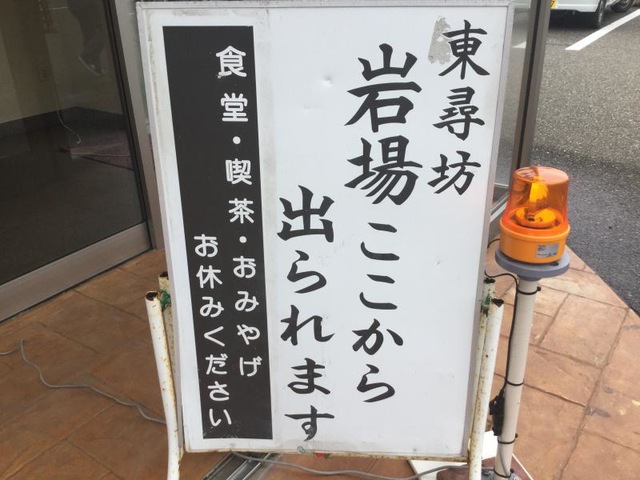 東尋坊
岩場ここから
出られます
食堂・喫茶・おみやげ
お休みください